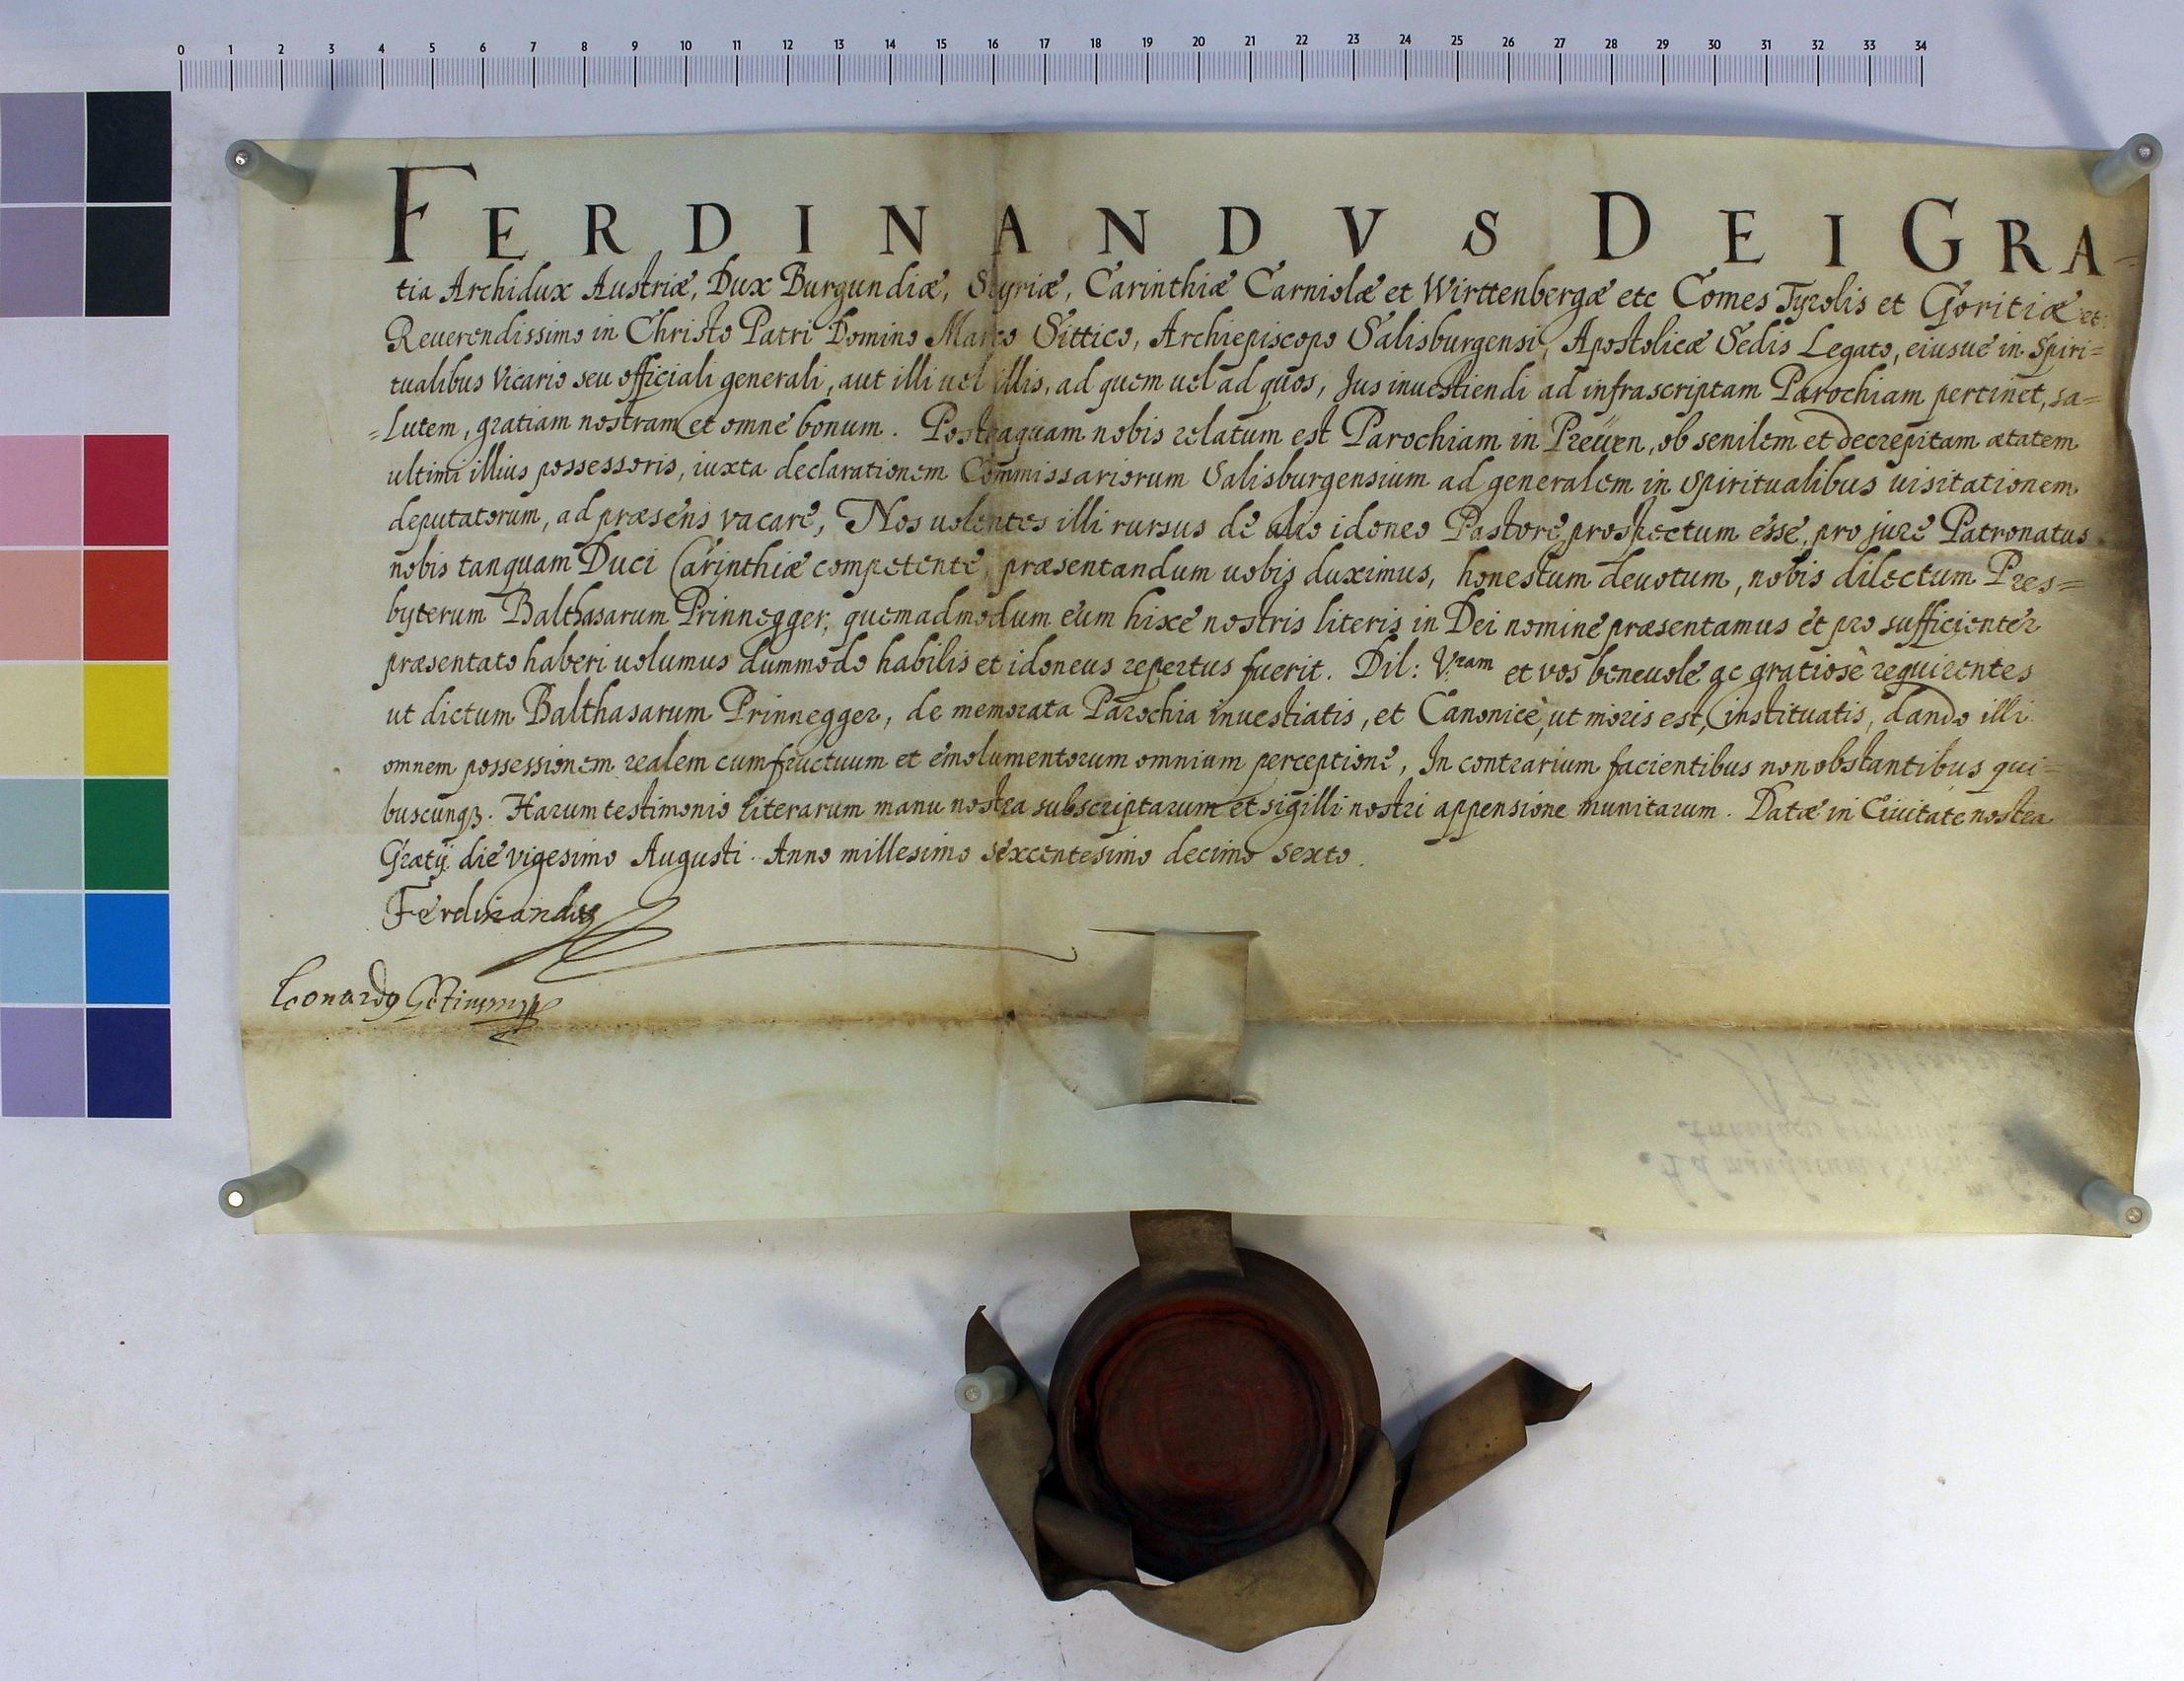 0 1 2 3 4 5 6 7 8 9 10 11 12 13 14 15 16 17 18 19 20 21 22 23 24 25 26 27 28 29 30 31 32 33 34
FERDINANDVS DEI GRA-
tia Archidux Austriæ, Dux Burgundiæ, Styriæ, Carinthiæ Carniolæ et Wirttenbergæ etc Comes Tyrolis et Goritiæ etc
Reuerendissimo in Christo Patri Domino Marco Sittico, Archiepiscopo Salisburgensi, Apostolicæ Sedis Legato, eiusue in Spiri=
tualibus Vicario seu officiali generali, aut illi uel illis, ad quem uel ad quos, Jus inuestiendi ad infrascriptam Parochiam pertinet, sa=
=lutem, gratiam nostram et omne bonum. Posteaquam nobis relatum est Parochiam in Preüen, ob senilem et decrepitam ætatem
ultimi illius possessoris, iuxta declarationem Commissariorum Salisburgensium ad generalem in spiritualibus uisitationem
deputatorum, ad præsens vacare, Nos uolentes illi rursus de alio idoneo Pastore prospectum esse, pro jure Patronatus
nobis tanquam Duci Carinthiæ competente, præsentandum uobis duximus, honestum deuotum, nobis dilectum Pres=
byterum Balthasarum Prinnegger, quemadmodum eum hisce nostris literis in Dei nomine præsentamus et pro sufficienter
præsentato haberi uolumus dummodo habilis et idoneus repertus fuerit. Dil: Vram et vos beneuole ac gratiosè requirentes
ut dictum Balthasarum Prinnegger, de memorata Parochia inuestiatis, et Canonicè, ut moris est, instituatis, dando illi
omnem possessionem realem cum fructuum et emolumentorum omnium perceptione, In contrarium facientibus non obstantibus qui=
buscunqꝫ. Harum testimonio literarum manu nostra subscriptarum et sigilli nostri appensione munitarum. Datæ in Ciuitate nostra
Grætij die vigesimo Augusti. Anno millesimo sexcentesimo decimo sexto.
Ferdinandus